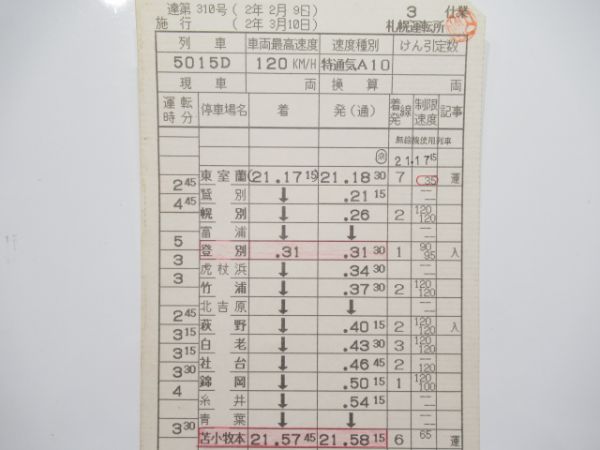 達第 310号 ( 2年 2月 9日)
施 行 ( 2年 3月10日)
3 仕業
札幌運転所
列 車 車両最高速度 速度種別 けん引定数
5015D 120 KM/H 特通気A10
現 車 両 換 算 両
運 転 時 分 停車場名 着 発(通) 着発 線 制限速度 記事
無線機使用列車
21.17 45
東 室 蘭 (21.17 15) 21.18 30 7 35 運
2 45
鷲 別 ↓ .21 15
4 45
幌 別 ↓ .26 2 120 120
富 浦 ↓ ↓
5
登 別 .31 .31 30 1 90 95 入
3
虎 杖 浜 ↓ .34 30
3
竹 浦 ↓ .37 30 2 120 120
北 吉 原 ↓ ↓
2 45
萩 野 ↓ .40 15 2 120 120 入
3 15
白 老 ↓ .43 30 3 120 120
3 15
社 台 ↓ .46 45 2 120
3 30
錦 岡 ↓ .50 15 1 120 100
4
糸 井 ↓ .54 15
青 葉 ↓ ↓
3 30
苫小牧本 21.57 45 21.58 15 6 65 運